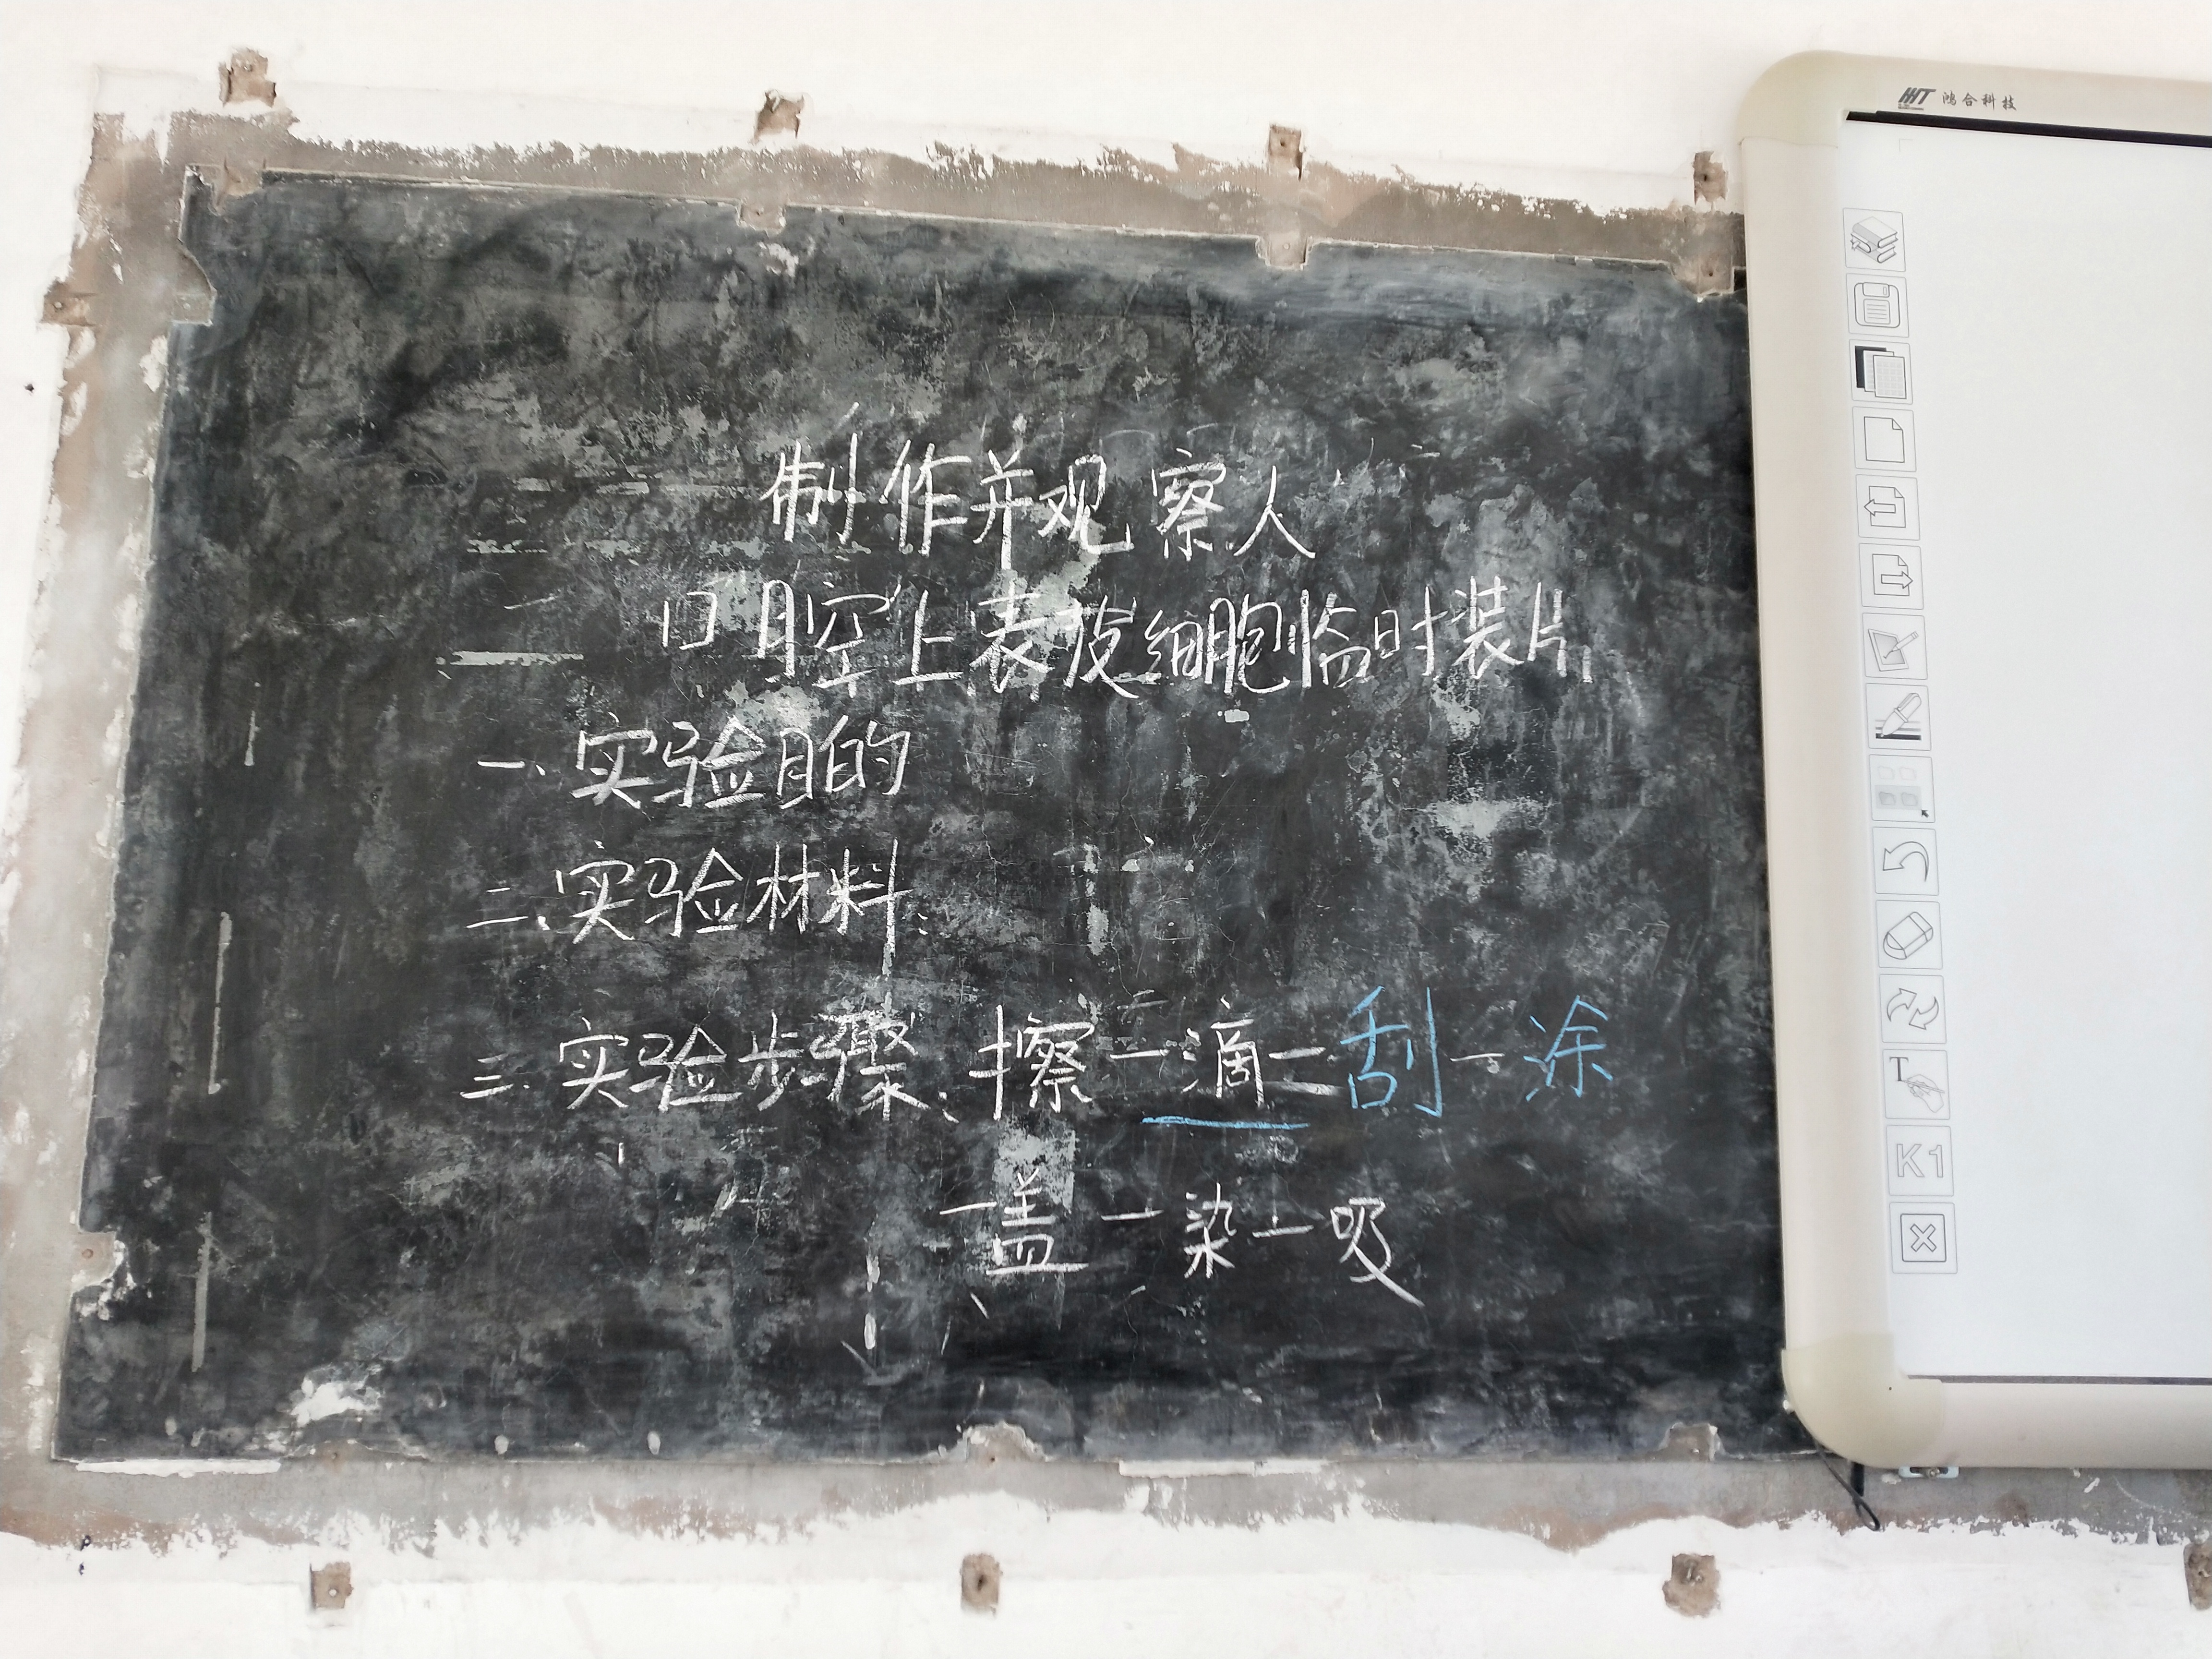 制作并观察人
口腔上表皮细胞临时装片
一、实验目的
二、实验材料:
三、实验步骤:擦一滴一刮一涂
一盖一染一吸
HHT 鸿合科技
T
K1